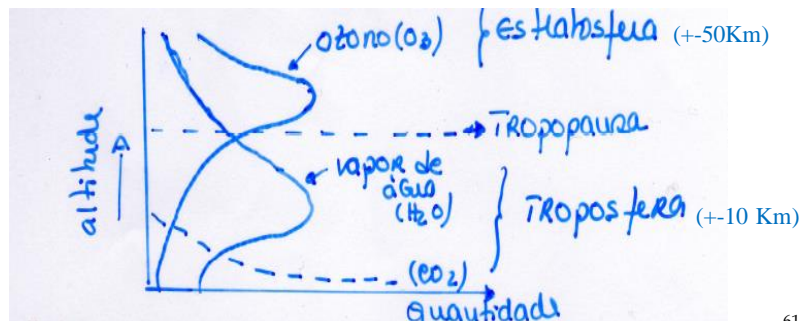 ozono (O3)
Estratosfera (+-50Km)
altitude
TROPOPAUSA
vapor de
água
(H2O)
TROPOSFERA (+-10 Km)
(CO2)
Quantidade
61